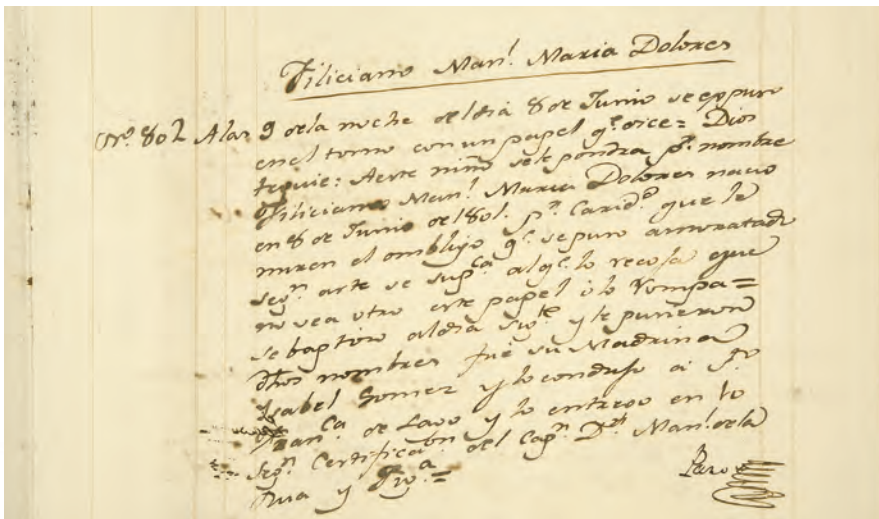 Filiciano Man.l Maria Dolores
Nº. 802 A las 9 de la noche del dia 8 de Junio se esppuso
en el torno con un papel q.e dice= Dios
te guie: A este niño se le pondra p.r nombre
Filiciano Man.l Maria Dolores nacio
en 8 de Junio de 1801. p.r Carid.d que le
miren el ombligo q.e se puso amoratado
seg.n arte se sup.ca al q.e lo recoja que
no vea otro este papel i lo rompa=
se baptizo al dia sig.te y le pusieron
dhos nombres fue su Madrina
Isabel Gomez y lo condujo a
Fran.ca de Lavo y lo entrego en lo
seg.n Certificacion del Cap.n D.n Man.l de la
Rua y